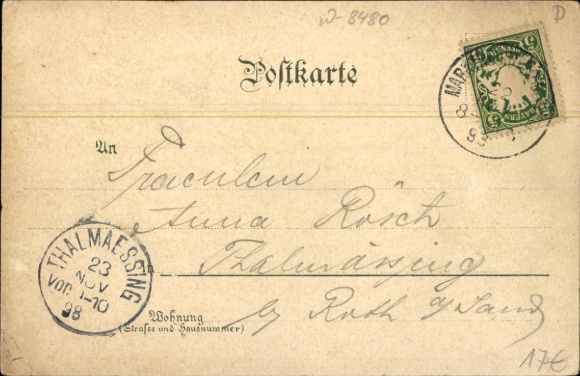 W-8480
D
Postkarte
5
BAYERN
98
An
Fraeulein
Anna Rösch
Thalmässing
by Roth a/Sand
THALMAESSING
23
NOV
98
Wohnung
(Straße und Hausnummer)
17€